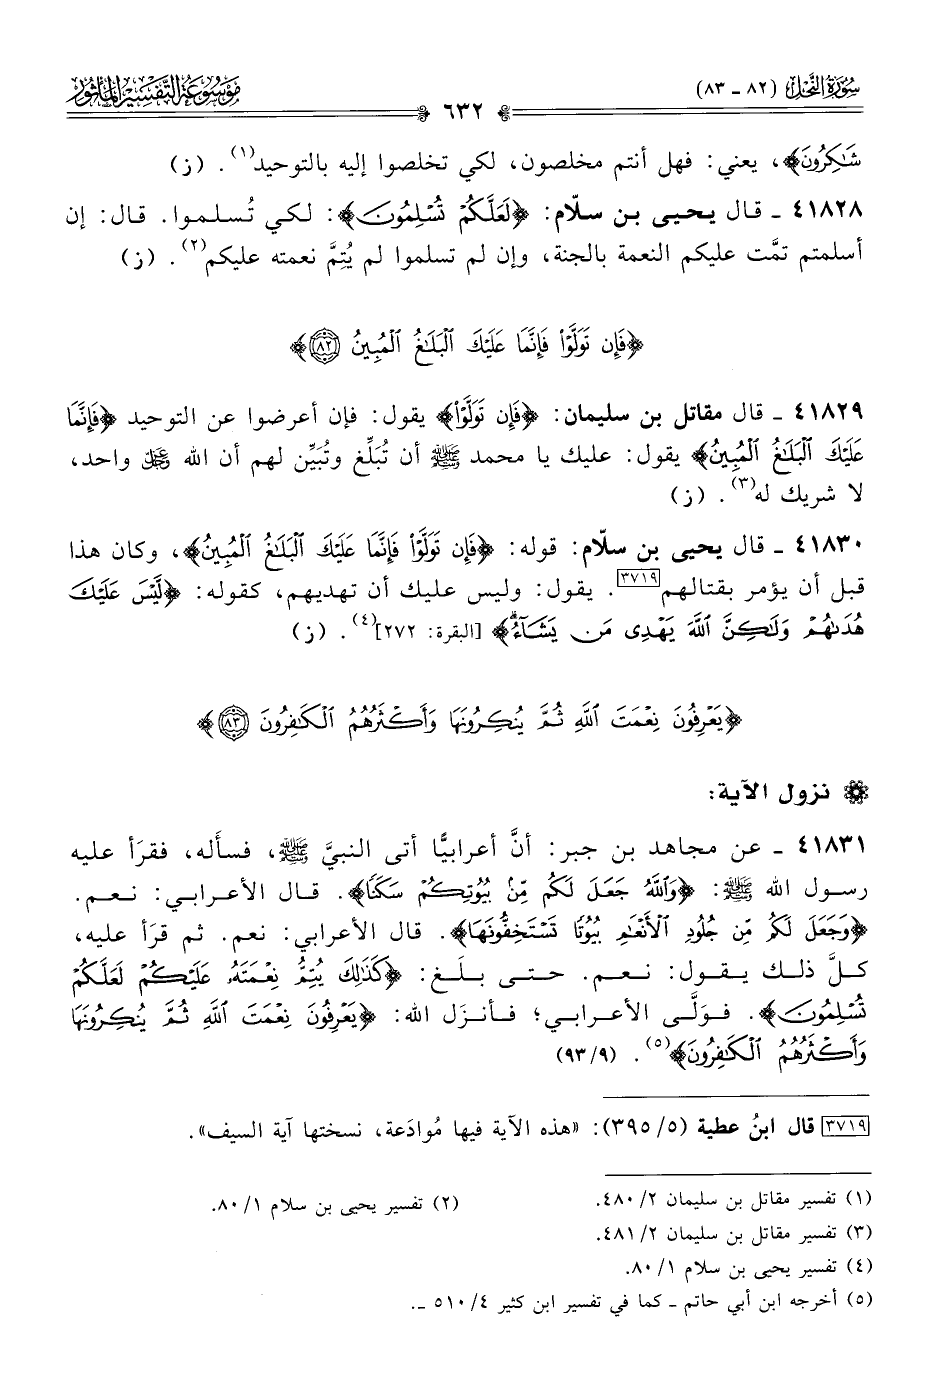 سورة النحل (٨٢ - ٨٣)
٦٣٢
موسوعة التفسير المأثور
شَٰكِرُونَ﴾، يعني: فهل أنتم مخلصون، لكي تخلصوا إليه بالتوحيد(١). (ز)
٤١٨٢٨ - قال يحيى بن سلّام: ﴿لَعَلَّكُمْ تُسْلِمُونَ﴾: لكي تُسلموا. قال: إن
أسلمتم تمَّت عليكم النعمة بالجنة، وإن لم تسلموا لم يُتِمَّ نعمته عليكم(٢). (ز)
﴿فَإِن تَوَلَّوْا۟ فَإِنَّمَا عَلَيْكَ ٱلْبَلَٰغُ ٱلْمُبِينُ ٨٢﴾
٤١٨٢٩ - قال مقاتل بن سليمان: ﴿فَإِن تَوَلَّوْا۟﴾ يقول: فإن أعرضوا عن التوحيد ﴿فَإِنَّمَا
عَلَيْكَ ٱلْبَلَٰغُ ٱلْمُبِينُ﴾ يقول: عليك يا محمد ﷺ أن تُبَلِّغ وتُبَيِّن لهم أن الله عز وجل واحد،
لا شريك له(٣). (ز)
٤١٨٣٠ - قال يحيى بن سلّام: قوله: ﴿فَإِن تَوَلَّوْا۟ فَإِنَّمَا عَلَيْكَ ٱلْبَلَٰغُ ٱلْمُبِينُ﴾، وكان هذا
قبل أن يؤمر بقتالهم[٣٧١٩]. يقول: وليس عليك أن تهديهم، كقوله: ﴿لَّيْسَ عَلَيْكَ
هُدَىٰهُمْ وَلَٰكِنَّ ٱللَّهَ يَهْدِى مَن يَشَآءُ﴾ [البقرة: ٢٧٢](٤). (ز)
﴿يَعْرِفُونَ نِعْمَتَ ٱللَّهِ ثُمَّ يُنكِرُونَهَا وَأَكْثَرُهُمُ ٱلْكَٰفِرُونَ ٨٣﴾
نزول الآية:
٤١٨٣١ - عن مجاهد بن جبر: أنَّ أعرابيًّا أتى النبيَّ ﷺ، فسأله، فقرَأ عليه
رسول الله ﷺ: ﴿وَٱللَّهُ جَعَلَ لَكُم مِّنۢ بُيُوتِكُمْ سَكَنًا﴾. قال الأعرابي: نعم.
﴿وَجَعَلَ لَكُم مِّن جُلُودِ ٱلْأَنْعَٰمِ بُيُوتًا تَسْتَخِفُّونَهَا﴾. قال الأعرابي: نعم. ثم قرَأ عليه،
كلَّ ذلك يقول: نعم. حتى بلَغ: ﴿كَذَٰلِكَ يُتِمُّ نِعْمَتَهُۥ عَلَيْكُمْ لَعَلَّكُمْ
تُسْلِمُونَ﴾. فولَّى الأعرابي؛ فأنزل الله: ﴿يَعْرِفُونَ نِعْمَتَ ٱللَّهِ ثُمَّ يُنكِرُونَهَا
وَأَكْثَرُهُمُ ٱلْكَٰفِرُونَ﴾(٥). (٩/ ٩٣)
[٣٧١٩] قال ابنُ عطية (٥/ ٣٩٥): «هذه الآية فيها مُوادَعة، نسختها آية السيف».
(١) تفسير مقاتل بن سليمان ٢/ ٤٨٠.
(٢) تفسير يحيى بن سلام ١/ ٨٠.
(٣) تفسير مقاتل بن سليمان ٢/ ٤٨١.
(٤) تفسير يحيى بن سلام ١/ ٨٠.
(٥) أخرجه ابن أبي حاتم - كما في تفسير ابن كثير ٤/ ٥١٠ -.